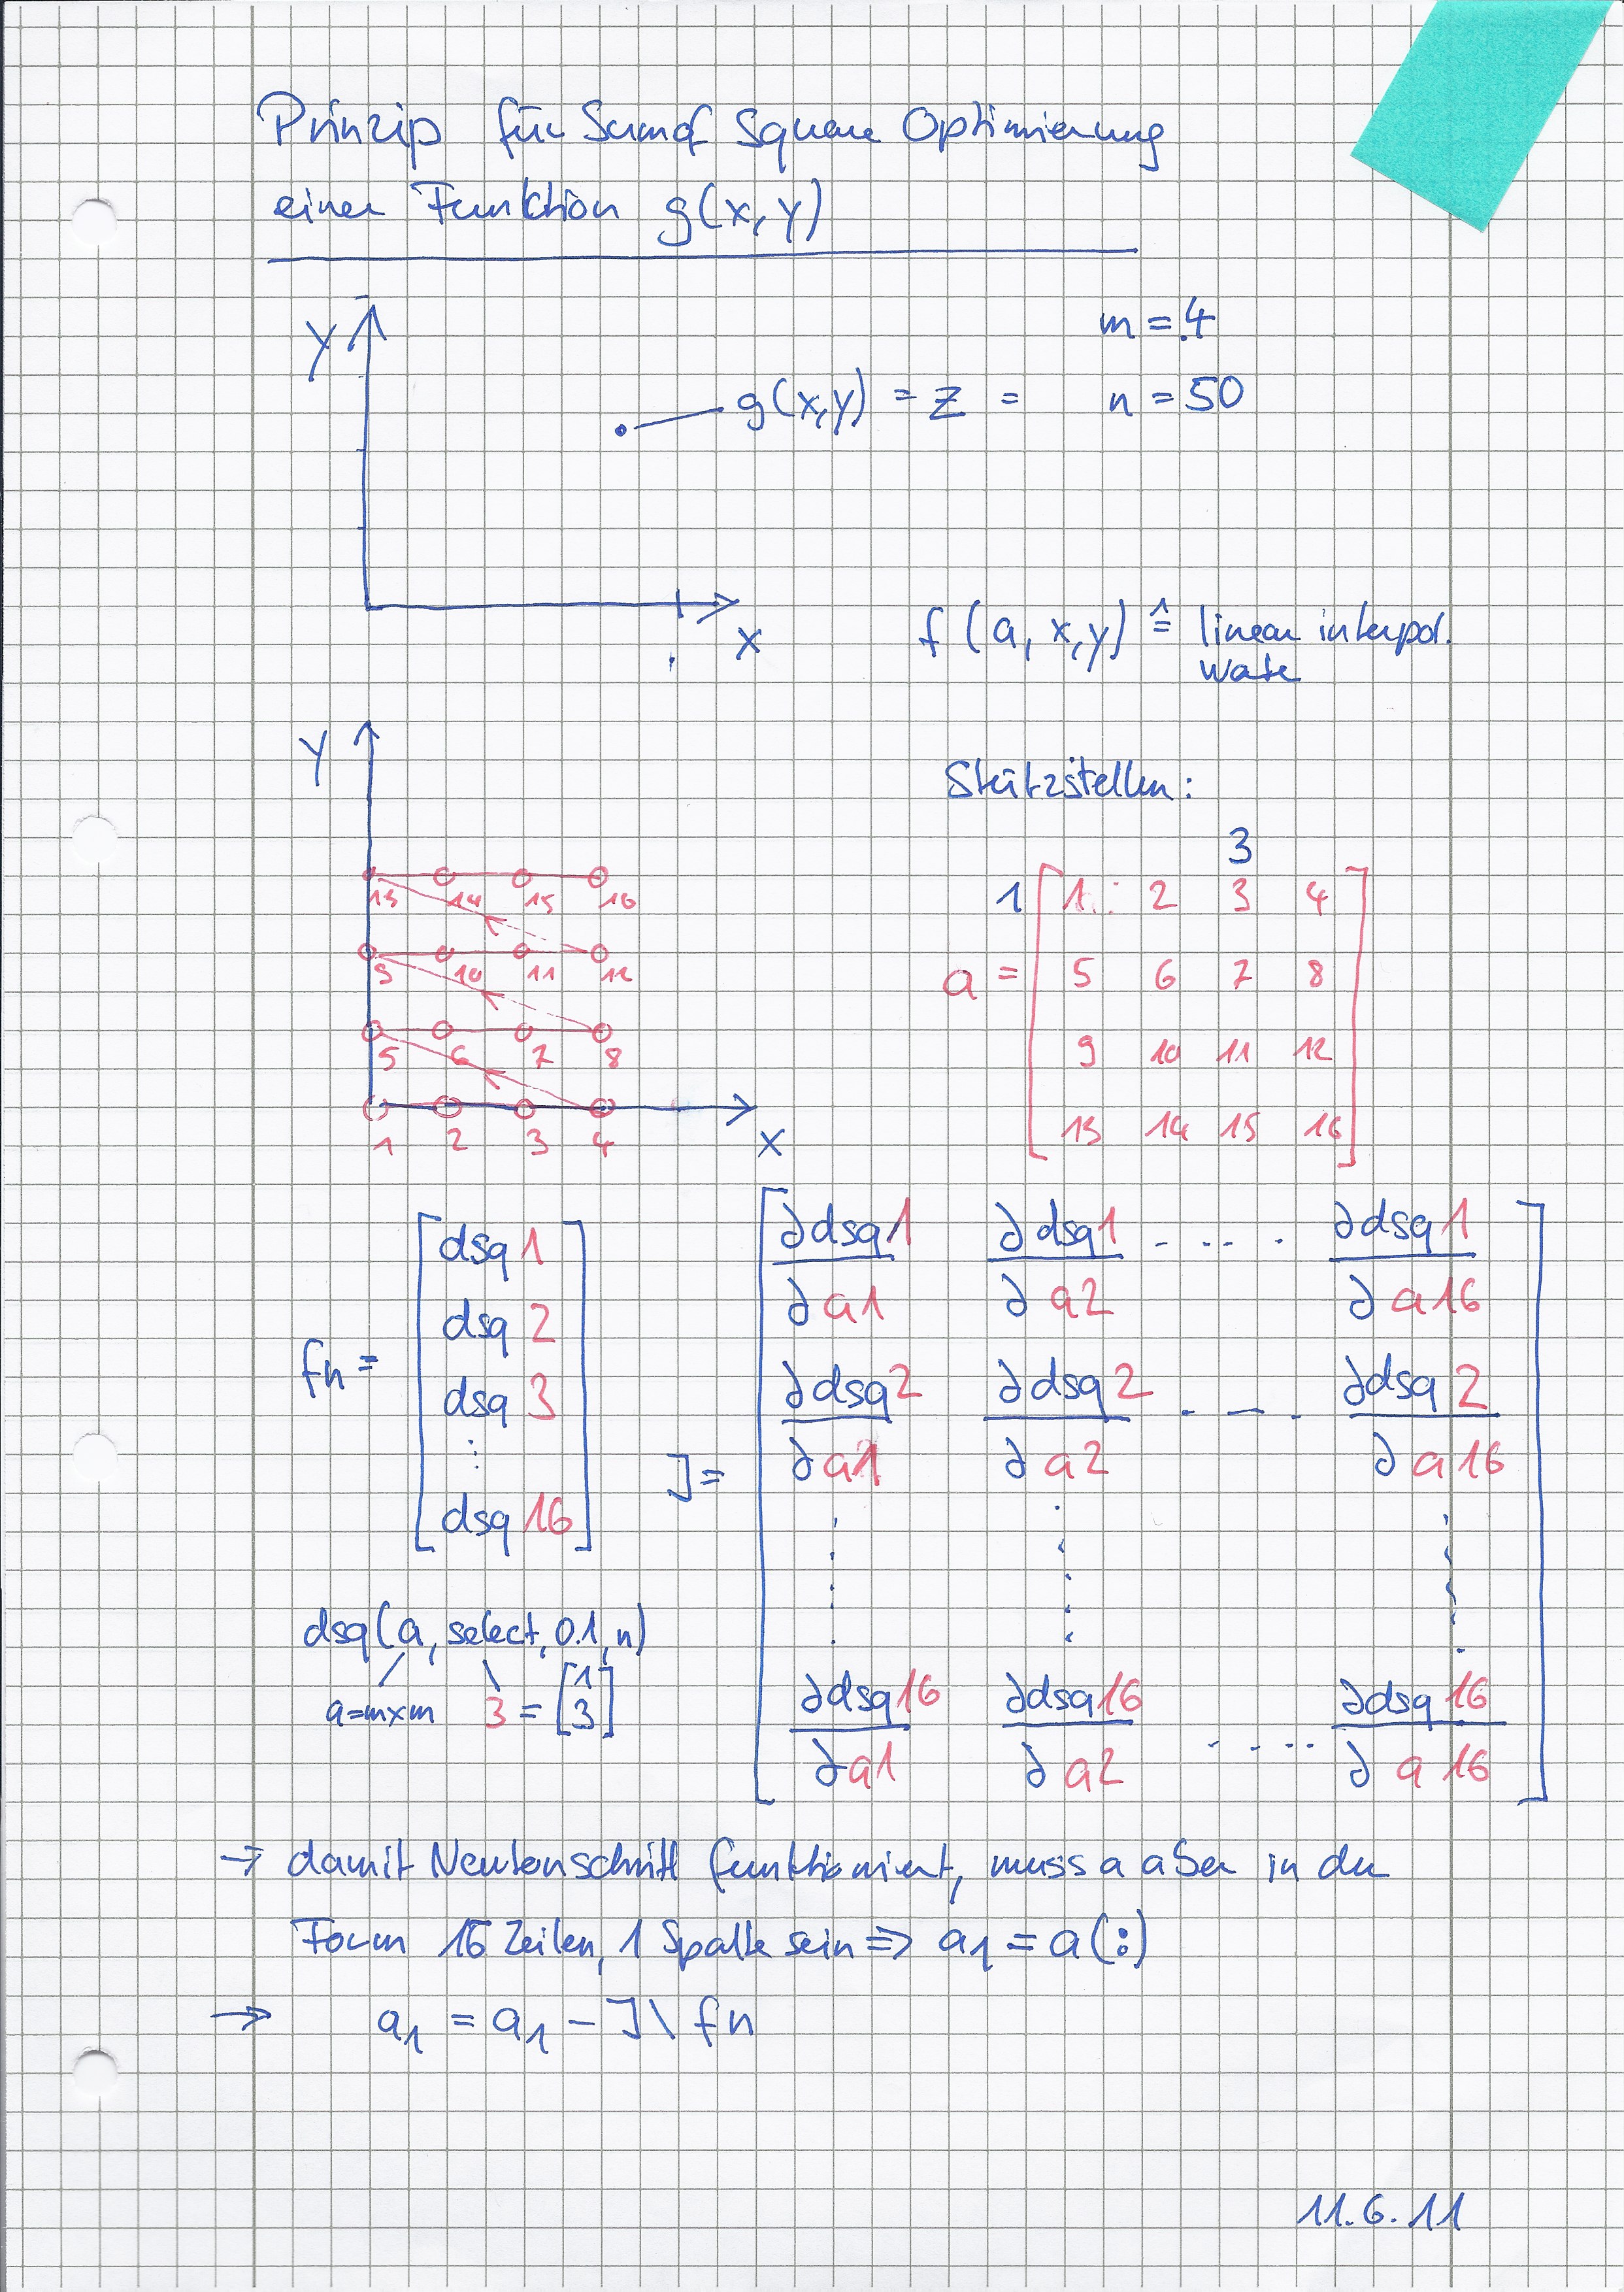 Prinzip für Sum of Square Optimierung
einer Funktion g(x,y)
m = 4
y
g(x,y) = z = n = 50
x
f(a, x,y) ≙ linear interpol.
werte
y
Stützstellen:
3
13 14 15 16
1 [ 1 2 3 4
9 10 11 12
a = 5 6 7 8
5 6 7 8
9 10 11 12
1 2 3 4
x
13 14 15 16 ]
fn = [ dsq 1
dsq 2
dsq 3
⋮
dsq 16 ]
J = [ ∂dsq1/∂a1 ∂dsq1/∂a2 ..... ∂dsq1/∂a16
∂dsq2/∂a1 ∂dsq2/∂a2 . - - . ∂dsq2/∂a16
⋮ ⋮ ⋮
∂dsq16/∂a1 ∂dsq16/∂a2 ..... ∂dsq16/∂a16 ]
dsq(a, select, 0.1, n)
a=m×m 3 = [1 3]
→ damit Newtonschritt funktioniert, muss a aber in der
Form 16 Zeilen, 1 Spalte sein ⇒ a1 = a(:)
→ a1 = a1 - J\fn
11.6.11